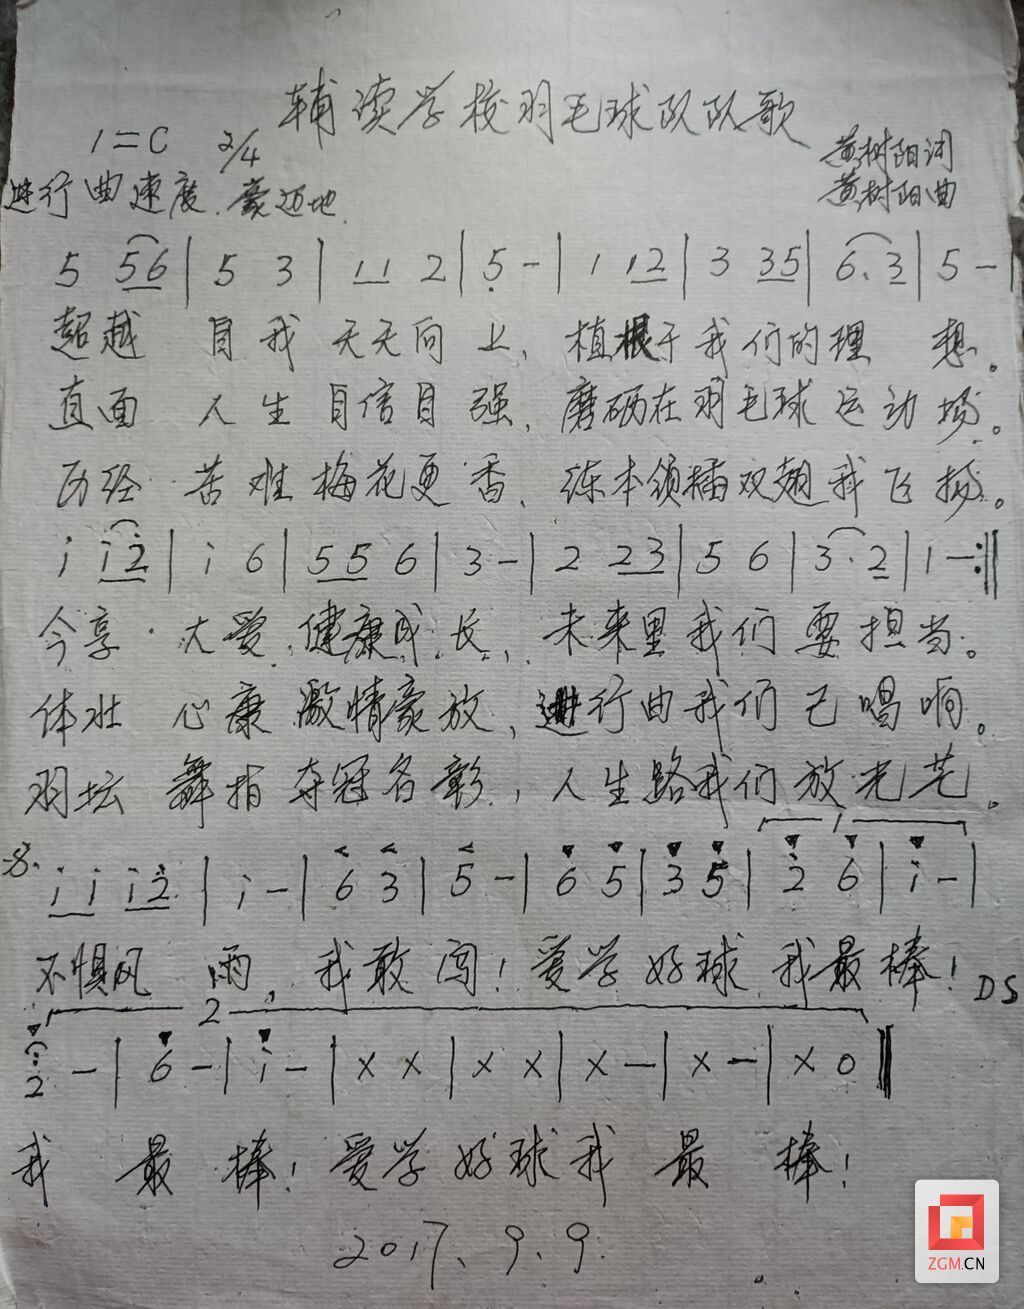 辅读学校羽毛球队队歌
1=C 2/4
黄树阳词
进行曲速度.豪迈地.
黄树阳曲
5 56 | 5 3 | 11 2 | 5 - | 1 12 | 3 35 | 6. 3 | 5 -
超越 自我 天天向上,植根于我们的理想。
直面 人生 自信自强,磨砺在羽毛球运动场。
历经 苦难 梅花更香,练本领插双翅我飞扬。
i i2 | i 6 | 55 6 | 3 - | 2 23 | 5 6 | 3. 2 | 1 - :‖
今享 大爱 健康成长,未来里我们要担当。
体壮 心康 激情豪放,进行曲我们已唱响。
羽坛 舞指 夺冠名彰,人生路我们放光芒。
1
i i i 2 | i - | 6 3 | 5 - | 6 5 | 3 5 | 2 6 | i - |
不惧风雨,我敢闯!爱学好球我最棒! DS
2
2 - | 6 - | i - | X X | X X | X - | X - | X 0 ‖
我 最 棒!爱学好球我 最 棒!
2017、9、9.
ZGM.CN